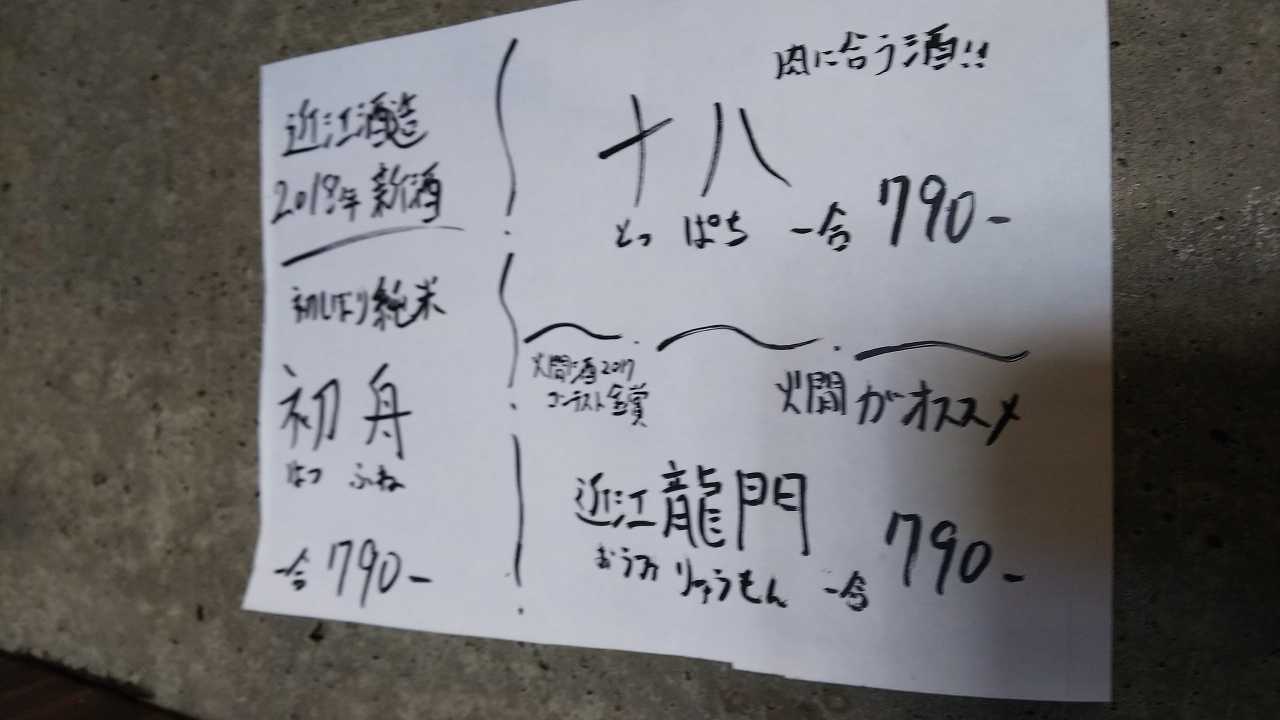 近江酒造
2018年 新酒
初しぼり純米
初舟
はつ ふね
一合 790-
肉に合う酒!!
十八
とっ ぱち 一合 790-
燗酒2017
コンテスト金賞
燗がオススメ
近江龍門
おうみ りゅうもん 一合 790-